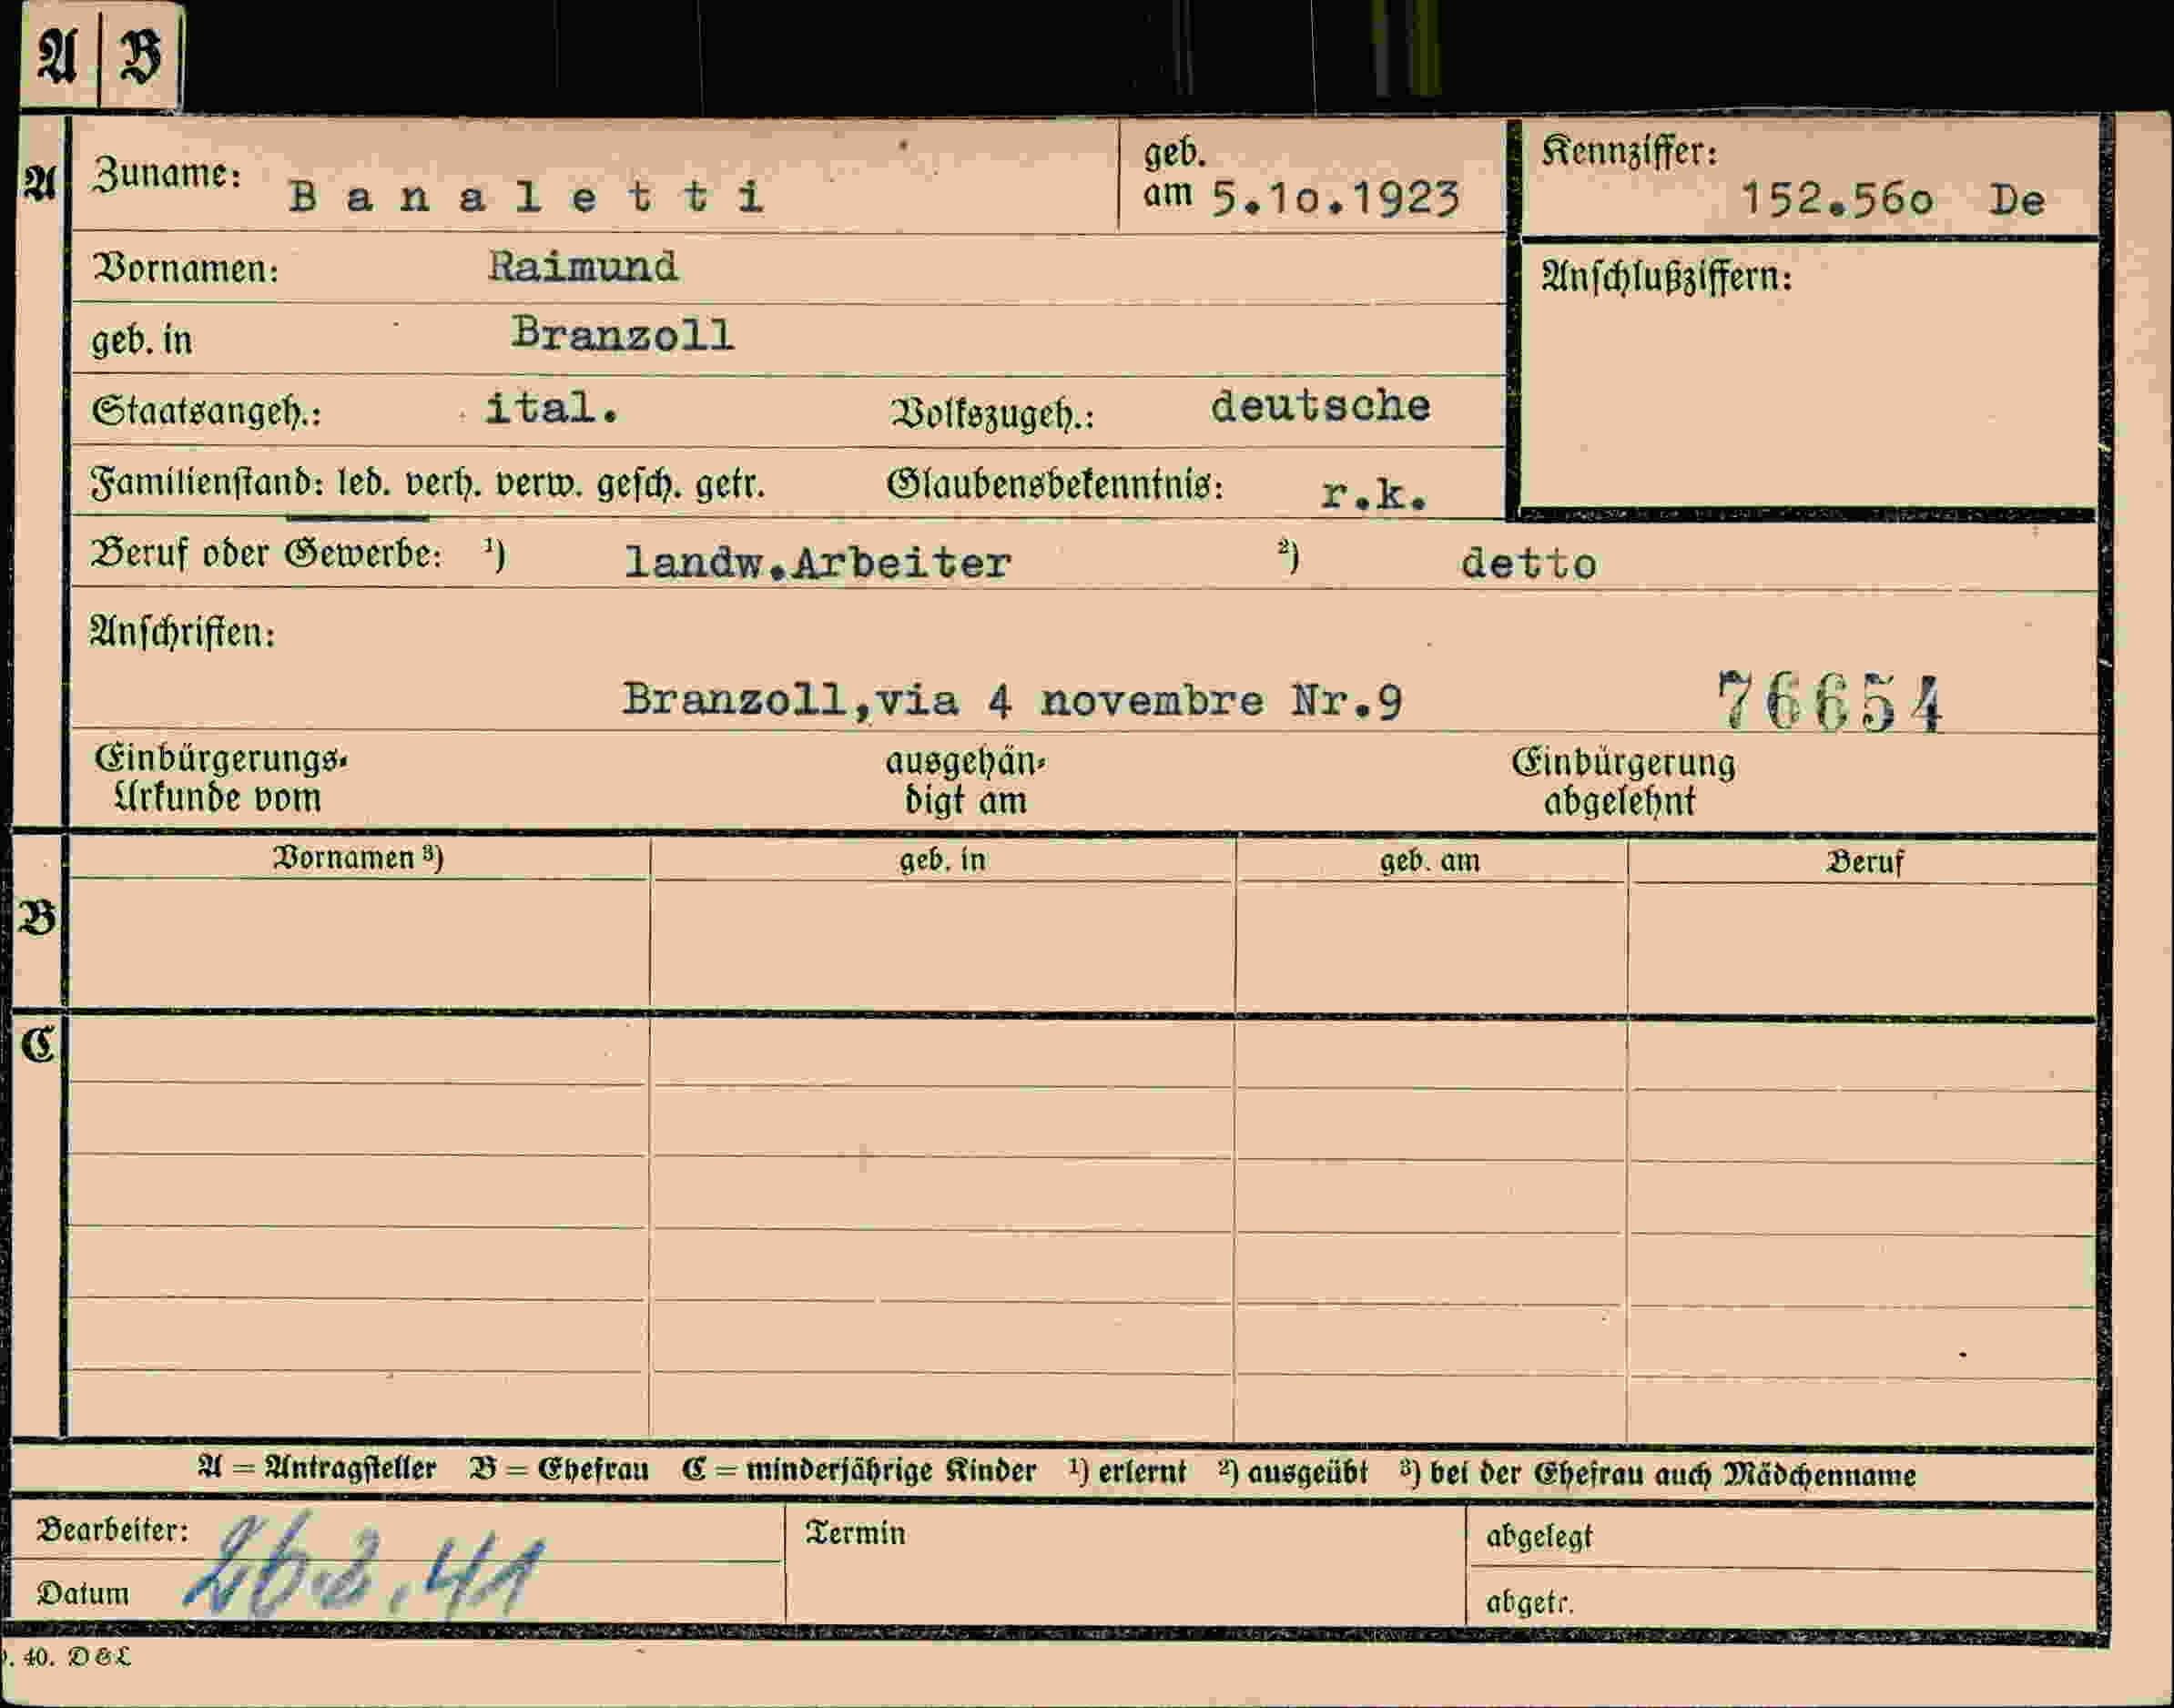 A B
A
Zuname: Banaletti
geb. am 5.10.1923
Kennziffer: 152.56o De
Vornamen: Raimund
Anschlußziffern:
geb. in Branzoll
Staatsangeh.: ital. Volkszugeh.: deutsche
Familienstand: led. verh. verw. gesch. getr. Glaubensbekenntnis: r.k.
Beruf oder Gewerbe: ¹) landw.Arbeiter ²) detto
Anschriften:
Branzoll,via 4 novembre Nr.9 76654
Einbürgerungs-
Urkunde vom
ausgehän-
digt am
Einbürgerung
abgelehnt
Vornamen ³) geb. in geb. am Beruf
B
C
A = Antragsteller B = Ehefrau C = minderjährige Kinder ¹) erlernt ²) ausgeübt ³) bei der Ehefrau auch Mädchenname
Bearbeiter: Termin abgelegt
Datum abgetr.
40. D & L